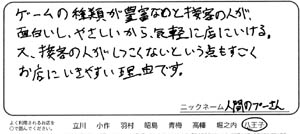 ゲームの種類が豊富なのと接客の人が、
面白いし、やさしいから、気軽に店にいける。
又、接客の人がしつこくないという点もすごく
お店にいきやすい理由です。
ニックネーム 人間のプーさん
よく利用されるお店を
○で囲んでください。 立川 小作 羽村 昭島 青梅 高幡 堀之内 八王子